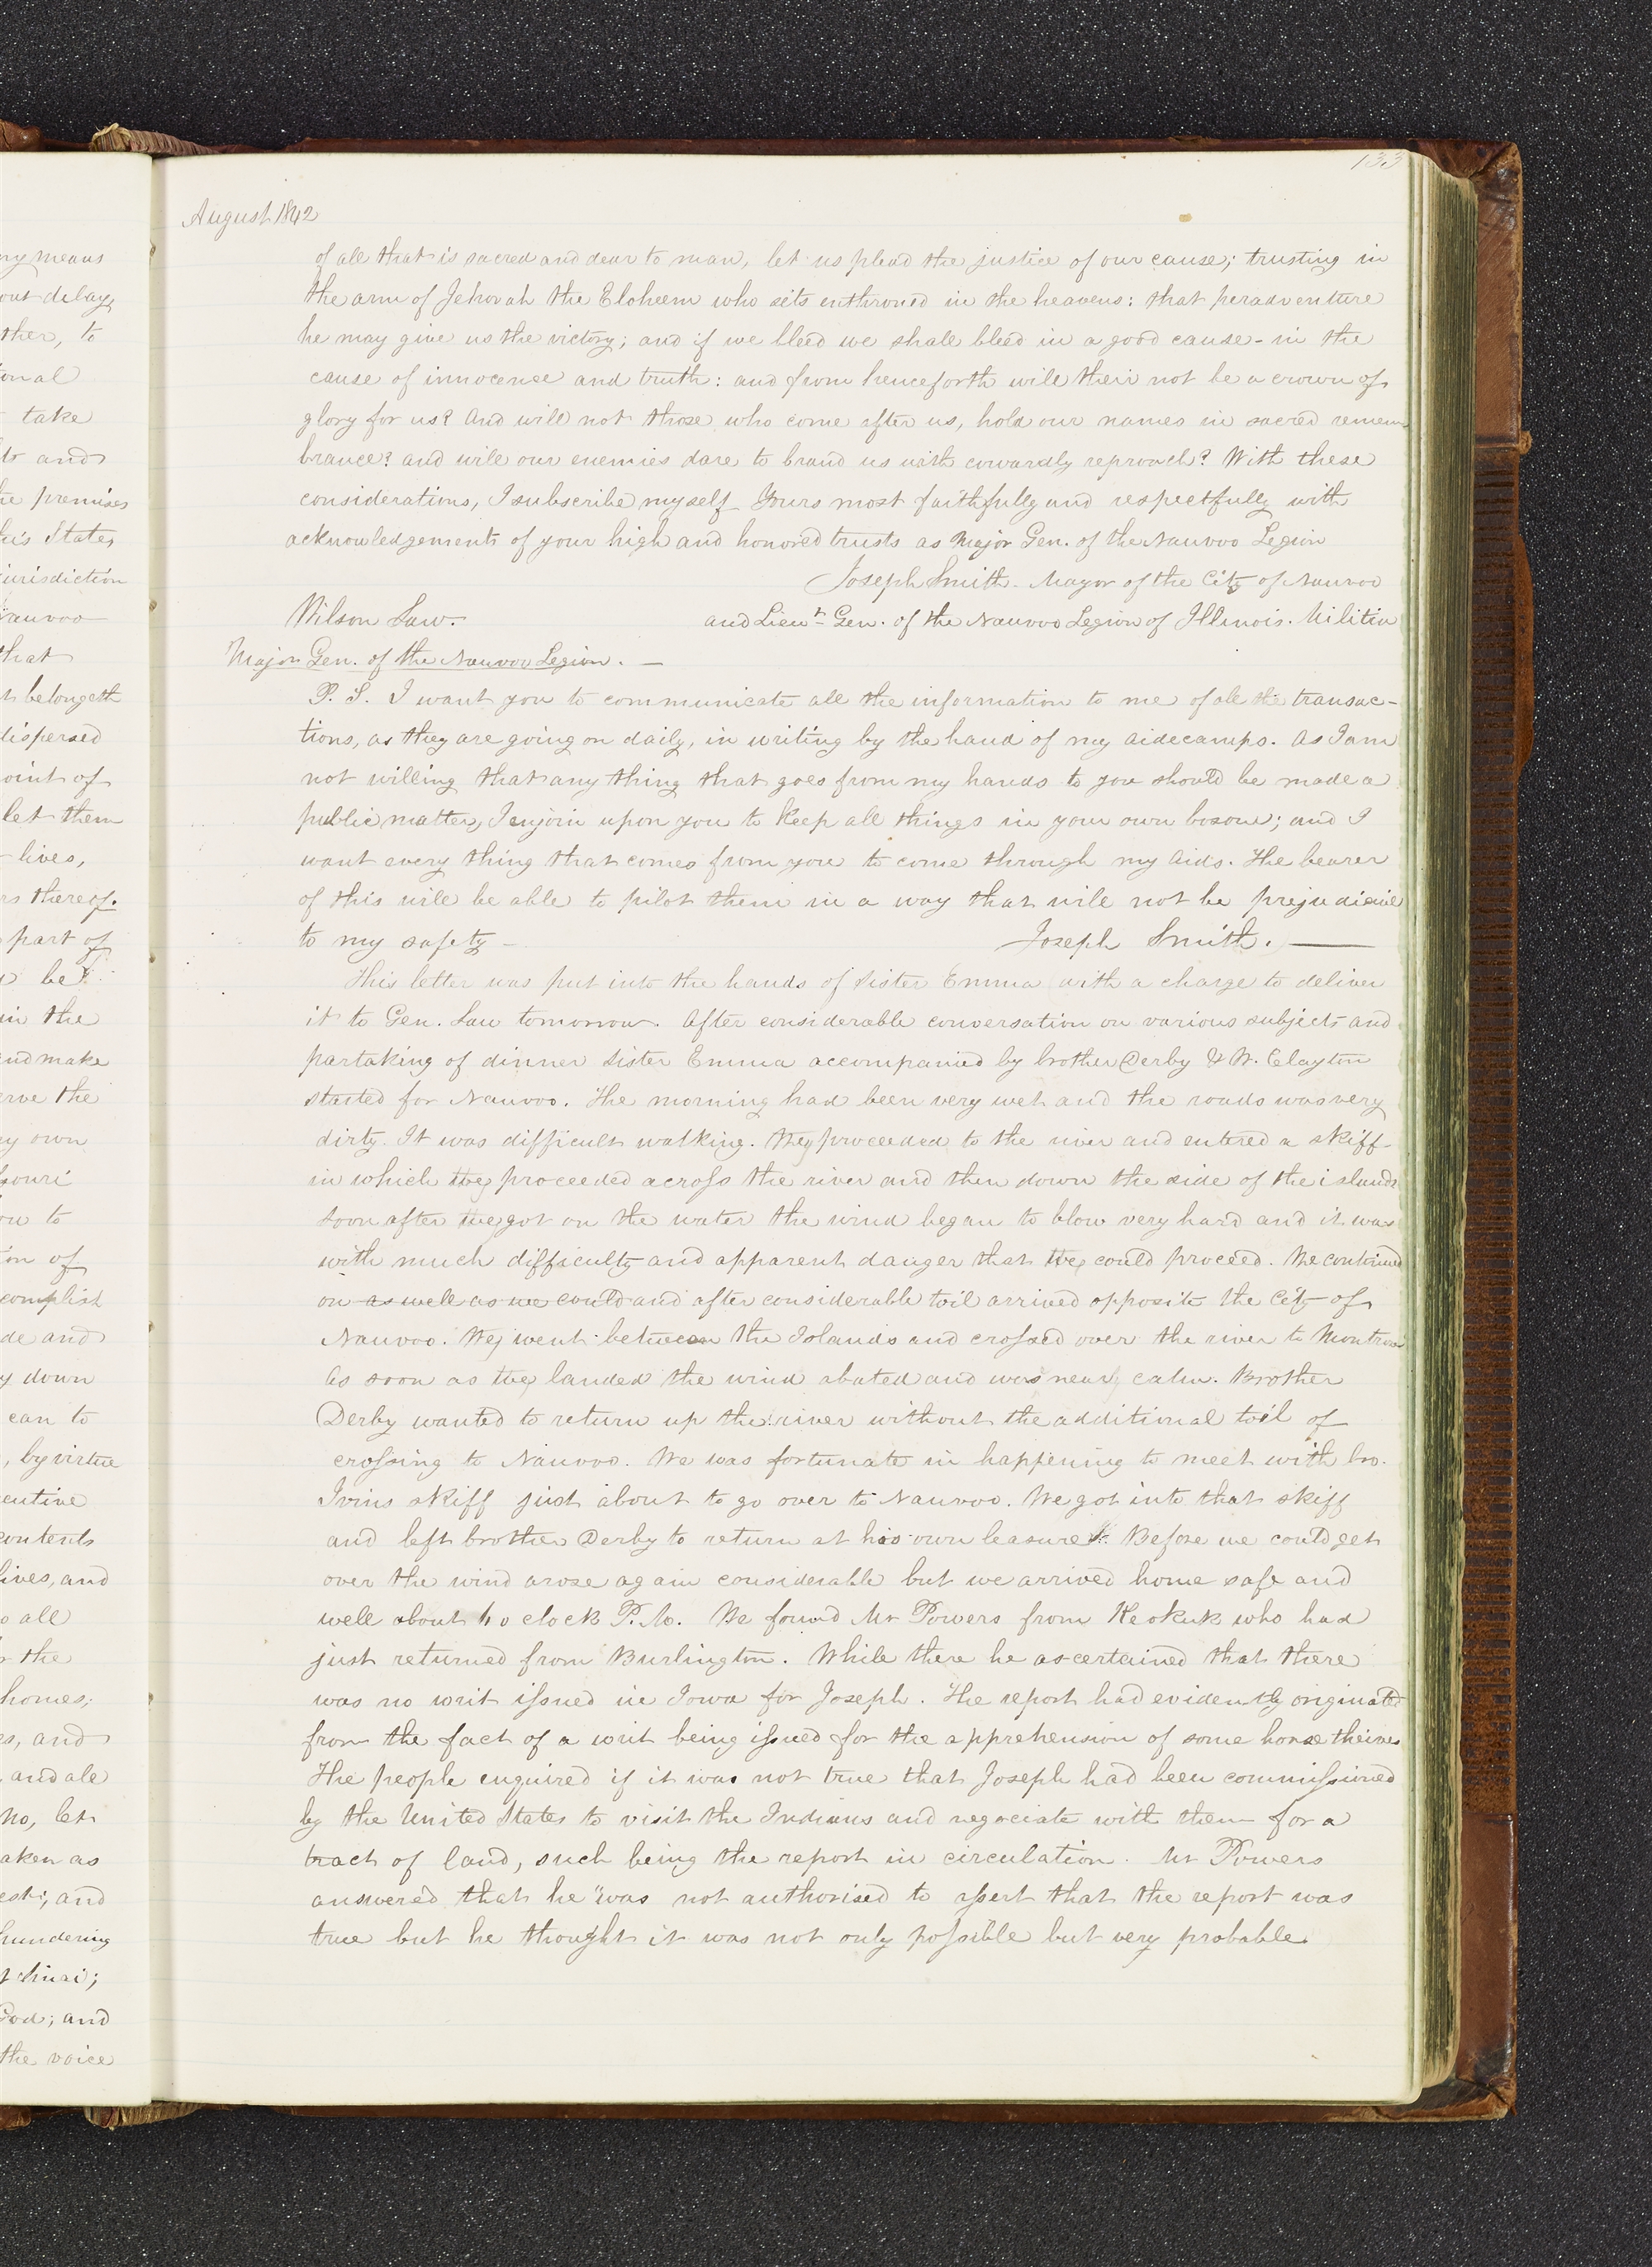 133
August 1842
of all that is sacred and dear to man, let us plead the justice of our cause; trusting in
the arm of Jehovah the Eloheem who sits enthroned in the heavens: that peradventure
he may give us the victory; and if we bleed we shall bleed in a good cause - in the
cause of innocence and truth: and from henceforth will their not be a crown of
glory for us? And will not those who come after us, hold our names in sacred remem
brance? and will our enemies dare to brand us with cowardly reproach? With these
considerations, I subscribe myself Yours most faithfully and respectfully with
acknowledgements of your high and honored trusts as Major Gen. of the Nauvoo Legion
Joseph Smith. Mayor of the City of Nauvoo
Wilson Law. and Lieut Gen. of the Nauvoo Legion of Illinois. Militia
Major Gen. of the Nauvoo Legion. —
P. S. I want you to communicate all the information to me of all the transac-
tions, as they are going on daily, in writing by the hand of my aidecamps. As I am
not willing that any thing that goes from my hands to you should be made a
public matter, I enjoin upon you to keep all things in your own bosom; and I
want every thing that comes from you to come through my aids. The bearer
of this will be able to pilot them in a way that will not be prejudicial
to my safety — Joseph Smith. —
This letter was put into the hands of sister Emma with a charge to deliver
it to Gen. Law tomorrow. After considerable conversation on various subjects and
partaking of dinner sister Emma accompanied by brother Derby & W. Clayton
started for Nauvoo. The morning had been very wet and the roads was very
dirty. It was difficult walking. They proceeded to the river and entered a skiff
in which they proceeded across the river and then down the side of the islands
soon after they got on the water the wind began to blow very hard and it was
with much difficulty and apparent danger that they could proceed. We continued
on as well as we could and after considerable toil arrived opposite the City of
Nauvoo. They went between the Islands and crossed over the river to Montrose
As soon as they landed the wind abated and was nearly calm. Brother
Derby wanted to return up the river without the additional toil of
crossing to Nauvoo. We was fortunate in happening to meet with bro.
Ivins skiff just about to go over to Nauvoo. We got into that skiff
and left brother Derby to return at his own leasure. Before we could get
over the wind arose again considerable but we arrived home safe and
well about o clock P.M. We found Mr Powers from Keokuk who had
just returned from Burlington. While there he ascertained that there
was no writ issued in Iowa for Joseph. The report had evidently originated
from the fact of a writ being issued for the apprehension of some horse theives
The people enquired if it was not true that Joseph had been commissioned
by the United States to visit the Indians and negociate with them for a
tract of land, such being the report in circulation. Mr Powers
answered that he "was not authorised to assert that the report was
true but he thought it was not only possible but very probable.